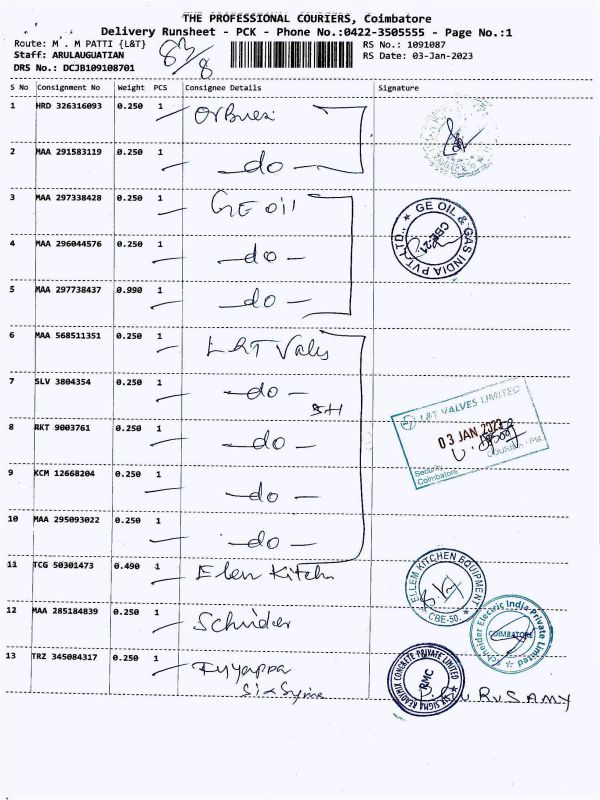 THE PROFESSIONAL COURIERS, Coimbatore
Delivery Runsheet - PCK - Phone No.:0422-3505555 - Page No.:1
Route: M . M PATTI {L&T} RS No.: 1091087
Staff: ARULAUGUATIAN RS Date: 03-Jan-2023
DRS No.: DCJB109108701
83/8
S No Consignment No Weight PCS Consignee Details Signature
1 HRD 326316093 0.250 1
2 MAA 291583119 0.250 1 -do-
3 MAA 297338428 0.250 1 GE oil
4 MAA 296044576 0.250 1 -do-
5 MAA 297738437 0.990 1 -do-
GE OIL & GAS INDIA PVT.LTD., CBE-21
6 MAA 568511351 0.250 1 L&T Valv
7 SLV 3804354 0.250 1 -do-
SH
8 RKT 9003761 0.250 1 -do-
9 KCM 12668204 0.250 1 -do-
10 MAA 295093022 0.250 1 -do-
L&T VALVES LIMITED
03 JAN 2023
Security
Coimbatore
11 TCG 50301473 0.490 1 Elen Kitchn
ELLEM KITCHEN EQUIPMENT CBE-50.
12 MAA 285184839 0.250 1 Schnider
Schneider Electric India Private Limited COIMBATORE
13 TRZ 345084317 0.250 1
SIX SIGMA READYMIX CONCRETE PRIVATE LIMITED RMC